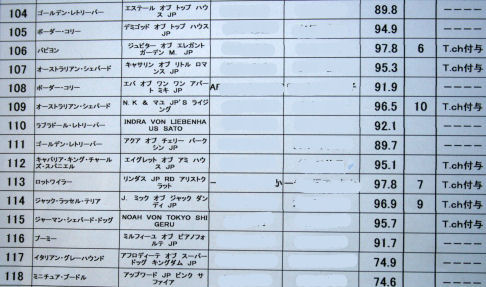 104 ゴールデン・レトリーバー エステール オブ トップ ハウス JP 89.8 ----
105 ボーダー・コリー デミゴッド オブ トップ ハウス JP 94.9 ----
106 パピヨン ジュピター オブ エレガント ガーデン M. JP 97.8 6 T.ch付与
107 オーストラリアン・シェパード キャサリン オブ リトル ロマンス JP 95.3 T.ch付与
108 ボーダー・コリー エバ オブ ワン ワン アパート ミキ JP 91.9 ----
109 オーストラリアン・シェパード N. K & マユ JP'S ライジング 96.5 10 T.ch付与
110 ラブラドール・レトリーバー INDRA VON LIEBENHAUS SATO 92.1 ----
111 ゴールデン・レトリーバー アクア オブ チェリー パークシン JP 89.7 ----
112 キャバリア・キング・チャールズ・スパニエル エイグレット オブ アミ ハウス JP 95.1 T.ch付与
113 ロットワイラー リンダス JP RD アリストクラット 97.8 7 T.ch付与
114 ジャック・ラッセル・テリア J. ミック オブ ジャック ダンディ JP 96.9 9 T.ch付与
115 ジャーマン・シェパード・ドッグ NOAH VON TOKYO SHIGERU 95.7 T.ch付与
116 プーミー ミルフィーユ オブ ピアノフォルテ JP 91.7 ----
117 イタリアン・グレーハウンド アフロディーテ オブ スーパードッグ キングダム JP 74.9 ----
118 ミニチュア・プードル アップワード JP ピンク サファイア 74.6 ----